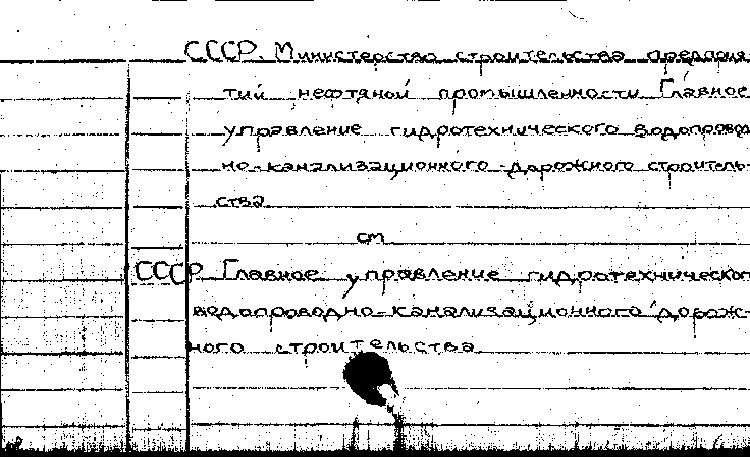 СССР. Министерство строительства предприя-
тий нефтяной промышленности. Главное
управление гидротехнического водопровод-
но-канализационного-дорожного строитель-
ства
см.
СССР Главное управление гидротехнического
водопроводно-канализационного дорож-
ного строительства